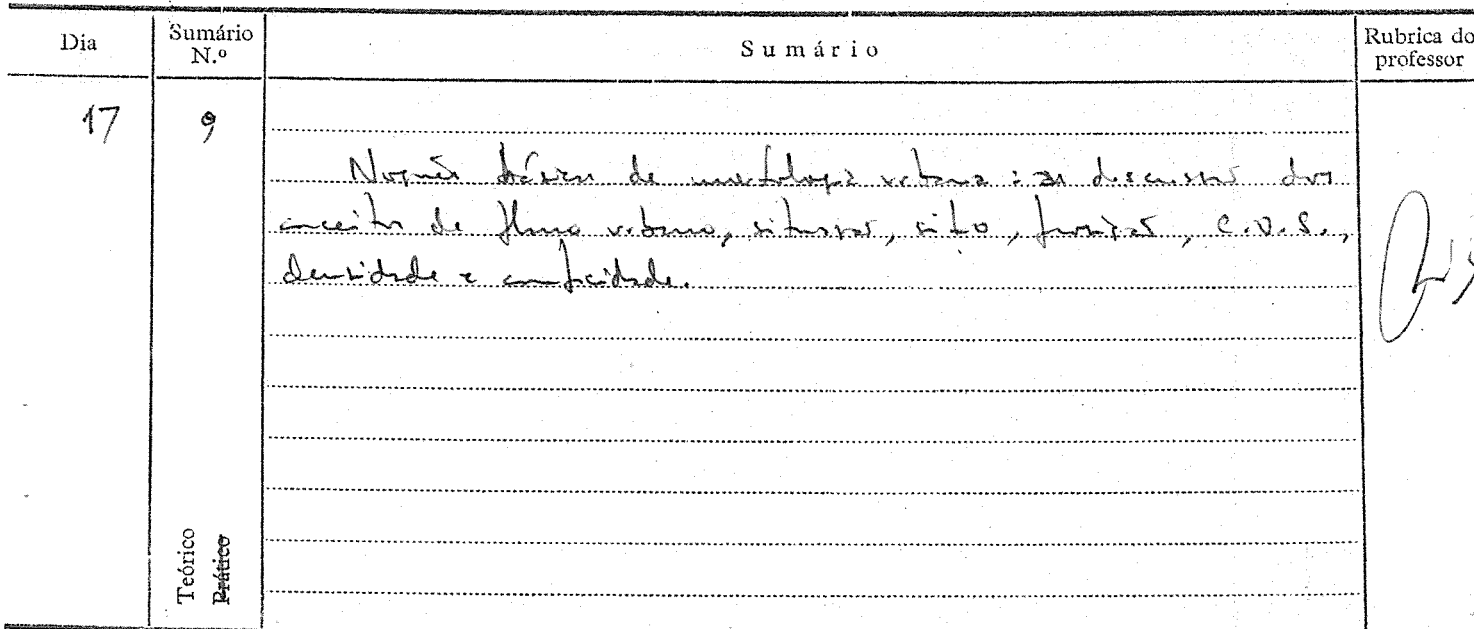 Dia
Sumário N.º
Sumário
Rubrica do professor
17
9
Noções básicas de morfologia urbana: as discussões dos
conceitos de plano urbano, situação, sito, função, C.O.S.,
densidade e
Teórico
Prático